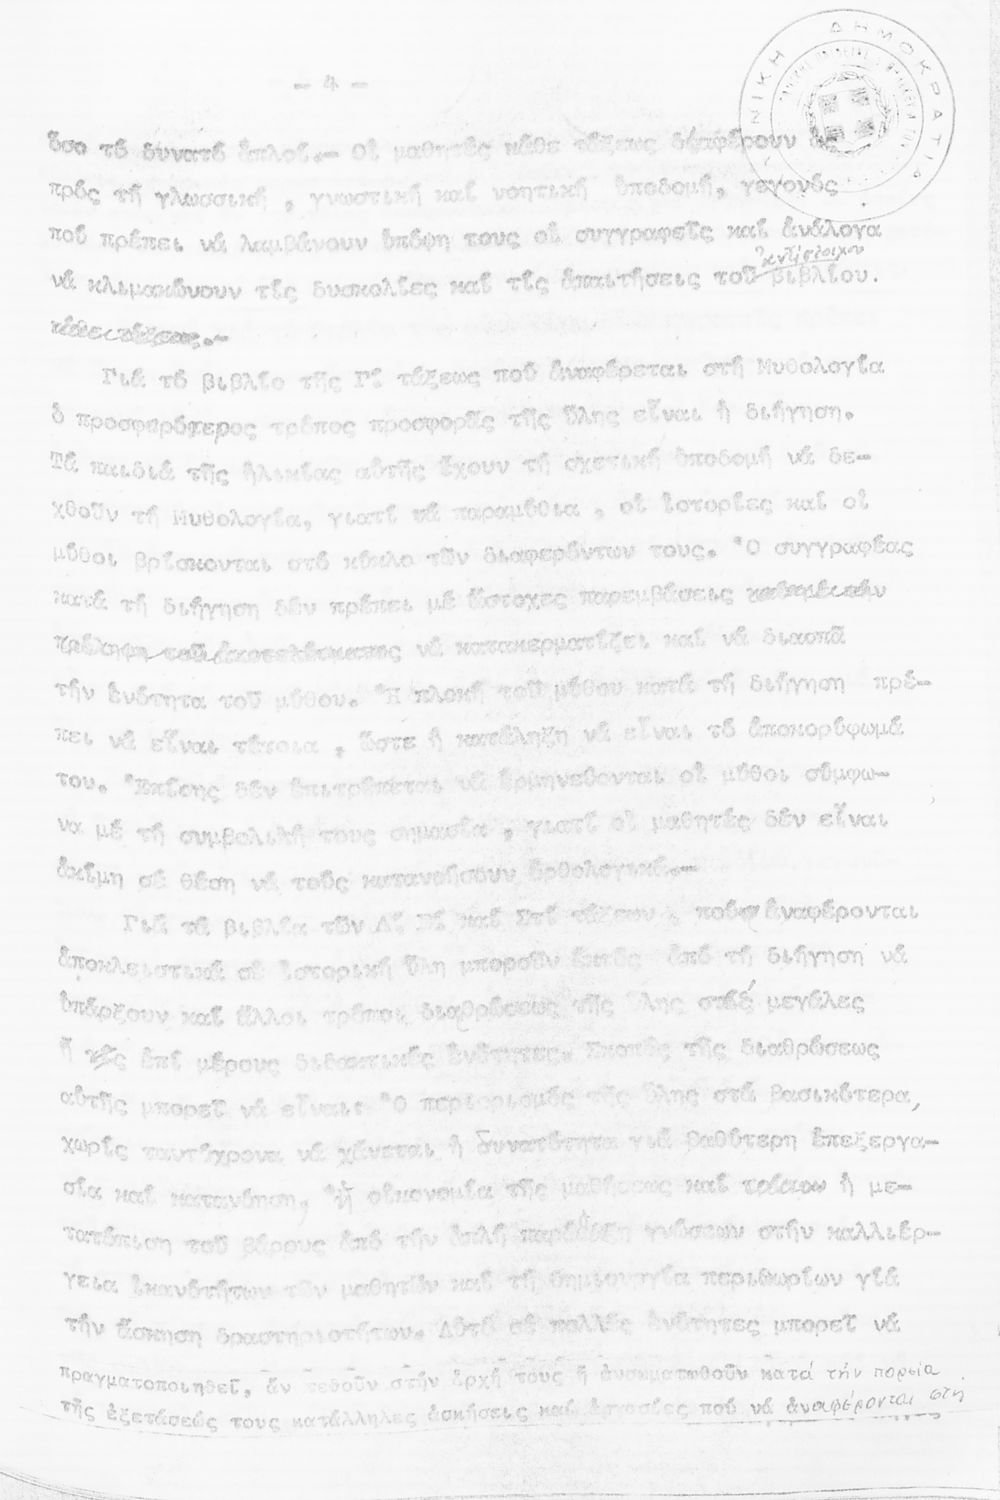 - 4 -
ὅσο τό δυνατό ἁπλοῖ.- Οἱ μαθητές κάθε τάξεως διαφέρουν ὡς
πρός τή γλωσσική , γνωστική καί νοητική ὑποδομή, γεγονός
πού πρέπει νά λαμβάνουν ὑπόψη τους οἱ συγγραφεῖς καί ἀνάλογα
ἀντίστοιχου
νά κλιμακώνουν τίς δυσκολίες καί τίς ἀπαιτήσεις τοῦ βιβλίου.
κάθε τάξεως.-
Γιά τό βιβλίο τῆς Γ΄ τάξεως πού ἀναφέρεται στή Μυθολογία
ὁ προσφερότερος τρόπος προσφορᾶς τῆς ὕλης εἶναι ἡ διήγηση.
Τά παιδιά τῆς ἡλικίας αὐτῆς ἔχουν τή σχετική ὑποδομή νά δε-
χθοῦν τή Μυθολογία, γιατί τά παραμύθια , οἱ ἱστορίες καί οἱ
μῦθοι βρίσκονται στό κύκλο τῶν διαφερόντων τους. Ὁ συγγραφέας
κατά τή διήγηση δέν πρέπει μέ ἄστοχες παρεμβάσεις
νά κατακερματίζει καί νά διασπᾶ
τήν ἑνότητα τοῦ μύθου. Ἡ πλοκή τοῦ μύθου κατά τή διήγηση πρέ-
πει νά εἶναι τέτοια , ὥστε ἡ κατάληξη νά εἶναι τό ἀποκορύφωμά
του. Ἐπίσης δέν ἐπιτρέπεται νά ἑρμηνεύονται οἱ μῦθοι σύμφω-
να μέ τή συμβολική τους σημασία , γιατί οἱ μαθητές δέν εἶναι
ἀκόμη σέ θέση νά τούς κατανοήσουν ὀρθολογικά.-
Γιά τά βιβλία τῶν Δ΄ Ε΄ καί Στ΄ τάξεων , πού ἀναφέρονται
ἀποκλειστικά σέ ἱστορική ὕλη μποροῦν ἐκτός ἀπό τή διήγηση νά
ὑπάρξουν καί ἄλλοι τρόποι διαρθρώσεως τῆς ὕλης στίς μεγάλες
ἤ τίς ἐπί μέρους διδακτικές ἑνότητες. Σκοπός τῆς διαθρώσεως
αὐτῆς μπορεῖ νά εἶναι: Ὁ περιορισμός τῆς ὕλης στά βασικότερα,
χωρίς ταυτόχρονα νά χάνεται ἡ δυνατότητα γιά βαθύτερη ἐπεξεργα-
σία καί κατανόηση, ἡ οἰκονομία τῆς μαθήσεως καί τρίτον ἡ με-
τατόπιση τοῦ βάρους ἀπό τήν ἁπλή παράδοση γνώσεων στήν καλλιέρ-
γεια ἱκανοτήτων τῶν μαθητῶν καί τή δημιουργία περιθωρίων γιά
τήν ἄσκηση δραστηριοτήτων. Αὐτό σέ πολλές ἑνότητες μπορεῖ νά
πραγματοποιηθεῖ, ἄν τεθοῦν στήν ἀρχή τους ἤ ἐνσωματωθοῦν κατά τήν πορεία
τῆς ἐξετάσεώς τους κατάλληλες ἀσκήσεις καί ἐργασίες πού νά ἀναφέρονται στή